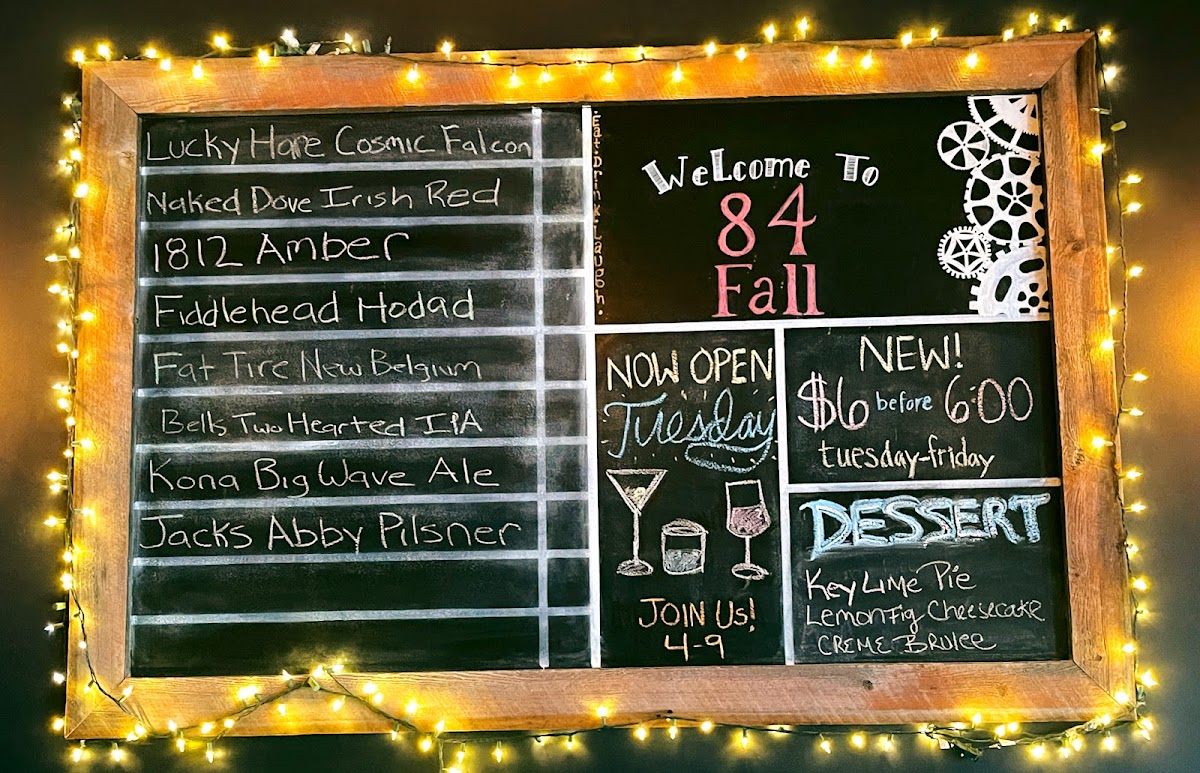 Lucky Hare Cosmic Falcon
Naked Dove Irish Red
1812 Amber
Fiddlehead Hodad
Fat Tire New Belgium
Bells Two Hearted IPA
Kona Big Wave Ale
Jacks Abby Pilsner
Eat.Drink.Laugh.
Welcome To
84
Fall
NOW OPEN
Tuesday
JOIN US!
4-9
NEW!
$6 before 6:00
tuesday-friday
DESSERT
Key Lime Pie
Lemon Fig Cheesecake
CREME BRULEE